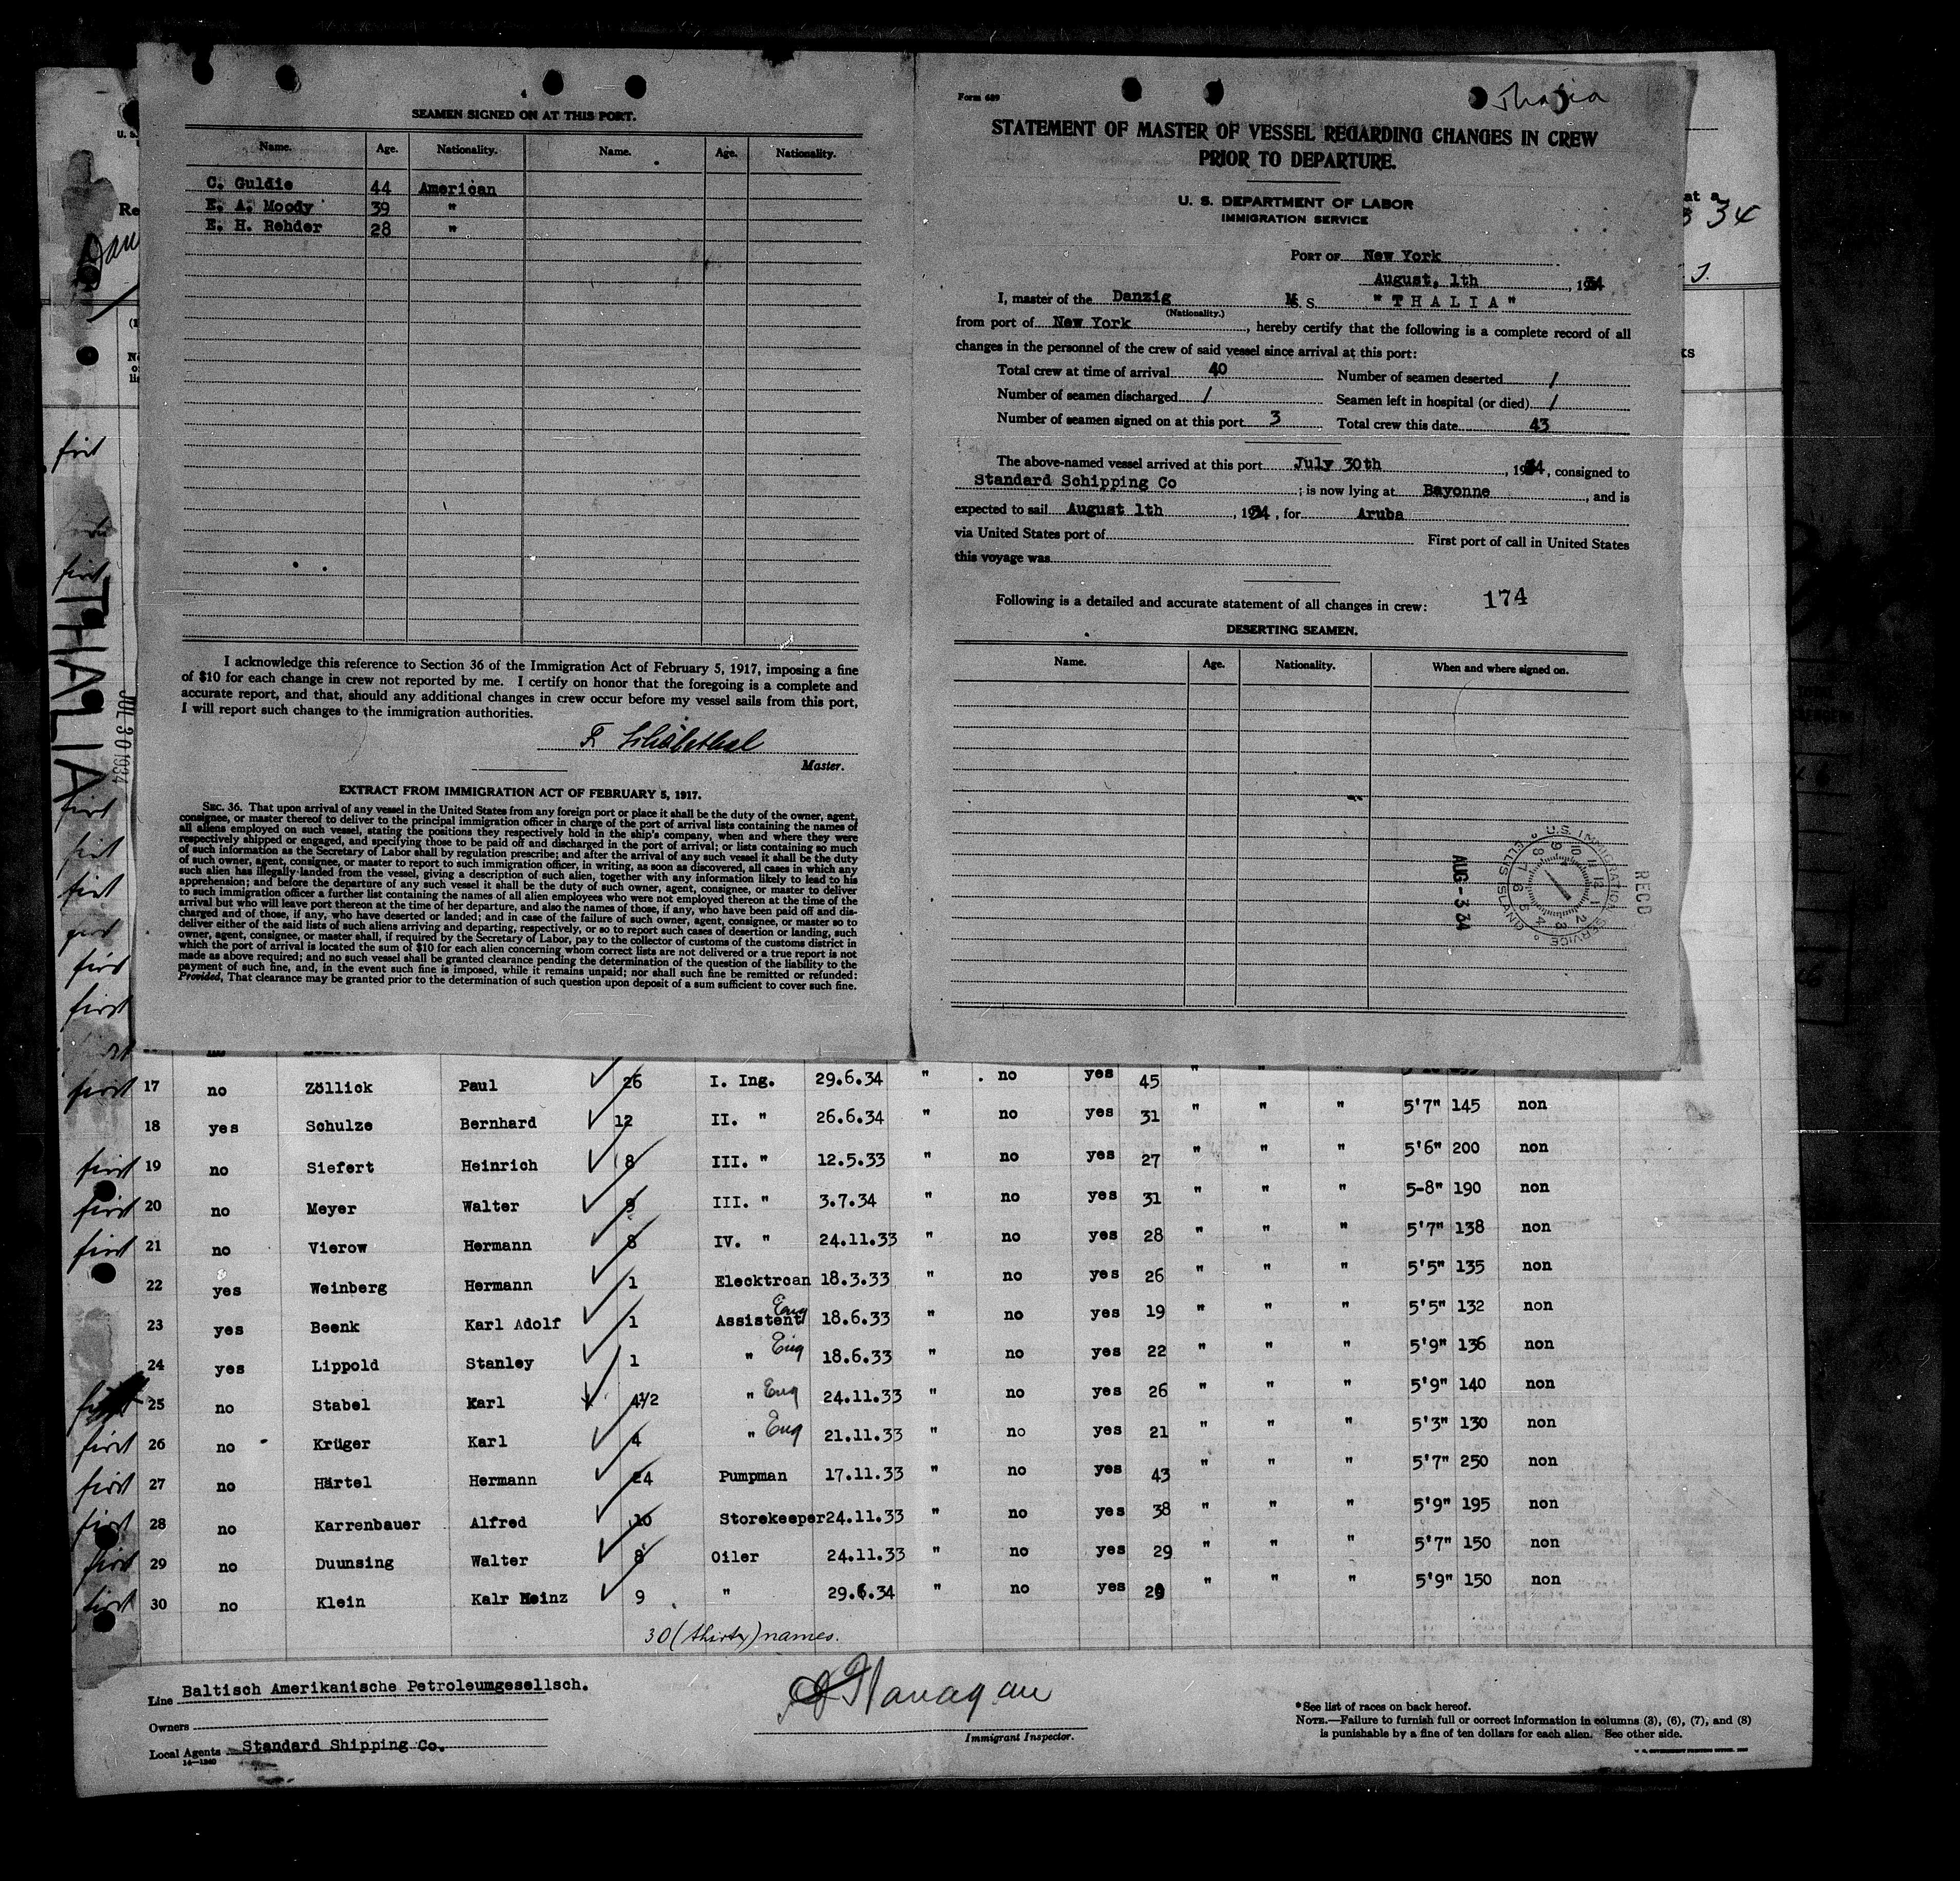 4
SEAMEN SIGNED ON AT THIS PORT.
Name. Age. Nationality. Name. Age. Nationality.
C. Guldie 44 American
E. A. Moody 39 "
E. H. Rehder 28 "
I acknowledge this reference to Section 36 of the Immigration Act of February 5, 1917, imposing a fine
of $10 for each change in crew not reported by me. I certify on honor that the foregoing is a complete and
accurate report, and that, should any additional changes in crew occur before my vessel sails from this port,
I will report such changes to the immigration authorities.
Master.
EXTRACT FROM IMMIGRATION ACT OF FEBRUARY 5, 1917.
SEC. 36. That upon arrival of any vessel in the United States from any foreign port or place it shall be the duty of the owner, agent,
consignee, or master thereof to deliver to the principal immigration officer in charge of the port of arrival lists containing the names of
all aliens employed on such vessel, stating the positions they respectively hold in the ship's company, when and where they were
respectively shipped or engaged, and specifying those to be paid off and discharged in the port of arrival; or lists containing so much
of such information as the Secretary of Labor shall by regulation prescribe; and after the arrival of any such vessel it shall be the duty
of such owner, agent, consignee, or master to report to such immigration officer, in writing, as soon as discovered, all cases in which any
such alien has illegally landed from the vessel, giving a description of such alien, together with any information likely to lead to his
apprehension; and before the departure of any such vessel it shall be the duty of such owner, agent, consignee, or master to deliver
to such immigration officer a further list containing the names of all alien employees who were not employed thereon at the time of the
arrival but who will leave port thereon at the time of her departure, and also the names of those, if any, who have been paid off and dis-
charged and of those, if any, who have deserted or landed; and in case of the failure of such owner, agent, consignee, or master so to
deliver either of the said lists of such aliens arriving and departing, respectively, or so to report such cases of desertion or landing, such
owner, agent, consignee, or master shall, if required by the Secretary of Labor, pay to the collector of customs of the customs district in
which the port of arrival is located the sum of $10 for each alien concerning whom correct lists are not delivered or a true report is not
made as above required; and no such vessel shall be granted clearance pending the determination of the question of the liability to the
payment of such fine, and, in the event such fine is imposed, while it remains unpaid; nor shall such fine be remitted or refunded:
Provided, That clearance may be granted prior to the determination of such question upon deposit of a sum sufficient to cover such fine.
Form 689
Thalia
STATEMENT OF MASTER OF VESSEL REGARDING CHANGES IN CREW
PRIOR TO DEPARTURE.
U. S. DEPARTMENT OF LABOR
IMMIGRATION SERVICE
PORT OF New York
August, 1th, 1934
I, master of the Danzig M.S. "THALIA"
(Nationality.)
from port of New York, hereby certify that the following is a complete record of all
changes in the personnel of the crew of said vessel since arrival at this port:
Total crew at time of arrival 40 Number of seamen deserted /
Number of seamen discharged / Seamen left in hospital (or died) /
Number of seamen signed on at this port 3 Total crew this date 43
The above-named vessel arrived at this port July 30th, 1934, consigned to
Standard Schipping Co; is now lying at Bayonne, and is
expected to sail August 1th, 1934, for Aruba
via United States port of First port of call in United States
this voyage was
Following is a detailed and accurate statement of all changes in crew: 174
DESERTING SEAMEN.
Name. Age. Nationality. When and where signed on.
REC'D
U.S. IMMIGRATION SERVICE
ELLIS ISLAND
AUG - 3 34
THALIA
JUL 30 1934
first 17 no Zöllick Paul 26 I. Ing. 29.6.34 " no yes 45 " " "
18 yes Schulze Bernhard 12 II. " 26.6.34 " no yes 31 " " " 5'7" 145 non
first 19 no Siefert Heinrich 8 III. " 12.5.33 " no yes 27 " " " 5'6" 200 non
first 20 no Meyer Walter 9 III. " 3.7.34 " no yes 31 " " " 5-8" 190 non
first 21 no Vierow Hermann 8 IV. " 24.11.33 " no yes 28 " " " 5'7" 138 non
22 yes Weinberg Hermann 1 Elecktrcan 18.3.33 " no yes 26 " " " 5'5" 135 non
23 yes Beenk Karl Adolf 1 Assistent Eng 18.6.33 " no yes 19 " " " 5'5" 132 non
24 yes Lippold Stanley 1 " Eng 18.6.33 " no yes 22 " " " 5'9" 136 non
25 no Stabel Karl 4 1/2 " Eng 24.11.33 " no yes 26 " " " 5'9" 140 non
first 26 no Krüger Karl 4 " Eng 21.11.33 " no yes 21 " " " 5'3" 130 non
first 27 no Härtel Hermann 24 Pumpman 17.11.33 " no yes 43 " " " 5'7" 250 non
first 28 no Karrenbauer Alfred 10 Storekeeper 24.11.33 " no yes 38 " " " 5'9" 195 non
first 29 no Duunsing Walter 8 Oiler 24.11.33 " no yes 29 " " " 5'7" 150 non
first 30 no Klein Kalr Heinz 9 " 29.6.34 " no yes 29 " " " 5'9" 150 non
30 (thirty) names.
Line Baltisch Amerikanische Petroleumgesellsch.
Owners
Local Agents Standard Shipping Co.
14—1240
Immigrant Inspector.
*See list of races on back hereof.
NOTE.—Failure to furnish full or correct information in columns (3), (6), (7), and (8)
is punishable by a fine of ten dollars for each alien. See other side.